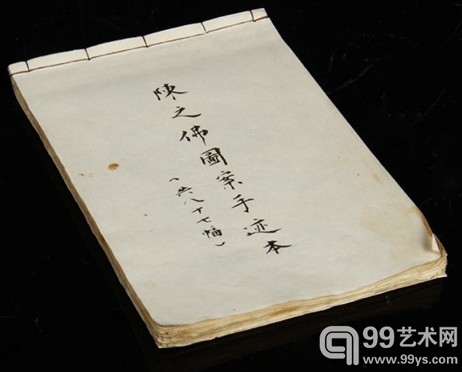 陳之佛圖案手迹本
（共八十七幅）
99艺术网
www.99ys.com